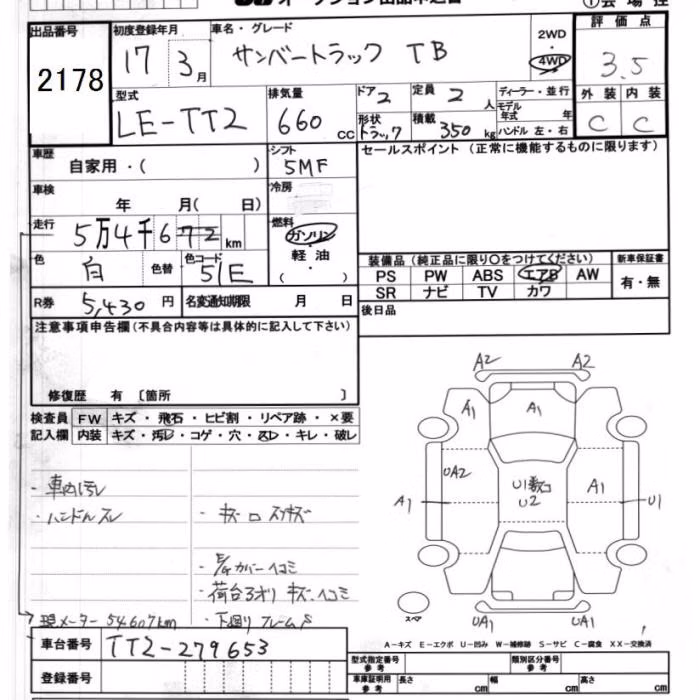 出品番号 初度登録年月 車名・グレード 2WD・4WD 評価点
2178 17 3月 サンバートラック TB 3.5
型式 排気量 ドア 2 定員 2人 ディーラー・並行 外装 内装
LE-TT2 660 CC 形状 トラック 積載 350 kg モデル年式 年 ハンドル 左・右 C C
車歴 自家用・( ) シフト 5MF セールスポイント (正常に機能するものに限ります)
車検 年 月( 日) 冷房
走行 5万4千672 km 燃料 ガソリン 軽油 ( ・ )
色 白 色替 色コード 51E
装備品 (純正品に限り○をつけてください) 新車保証書
PS PW ABS エアB AW 有・無
SR ナビ TV カワ
R券 5,430 円 名変通知期限 月 日 後日品
注意事項申告欄 (不具合内容等は具体的に記入して下さい)
修復歴 有 〔箇所 〕
検査員 FW キズ・飛石・ヒビ割・リペア跡・×要
記入欄 内装 キズ・汚レ・コゲ・穴・スレ・キレ・破レ
・車内汚レ
・ハンドルスレ
・E/Gカバーヘコミ
・荷台アオリ キズ、ヘコミ
現メーター 54607km ・下廻り フレームS
A2 A2
A1 A1
UA2 A1
A1 U1
U2 U1
スペア UA1 UA1
A-キズ E-エクボ U-凹み W-補修跡 S-サビ C-腐食 XX-交換済
車台番号 TT2-279653
型式指定番号 参考 類別区分番号 参考
登録番号 車庫証明用 参考 長さ cm 幅 cm 高さ cm